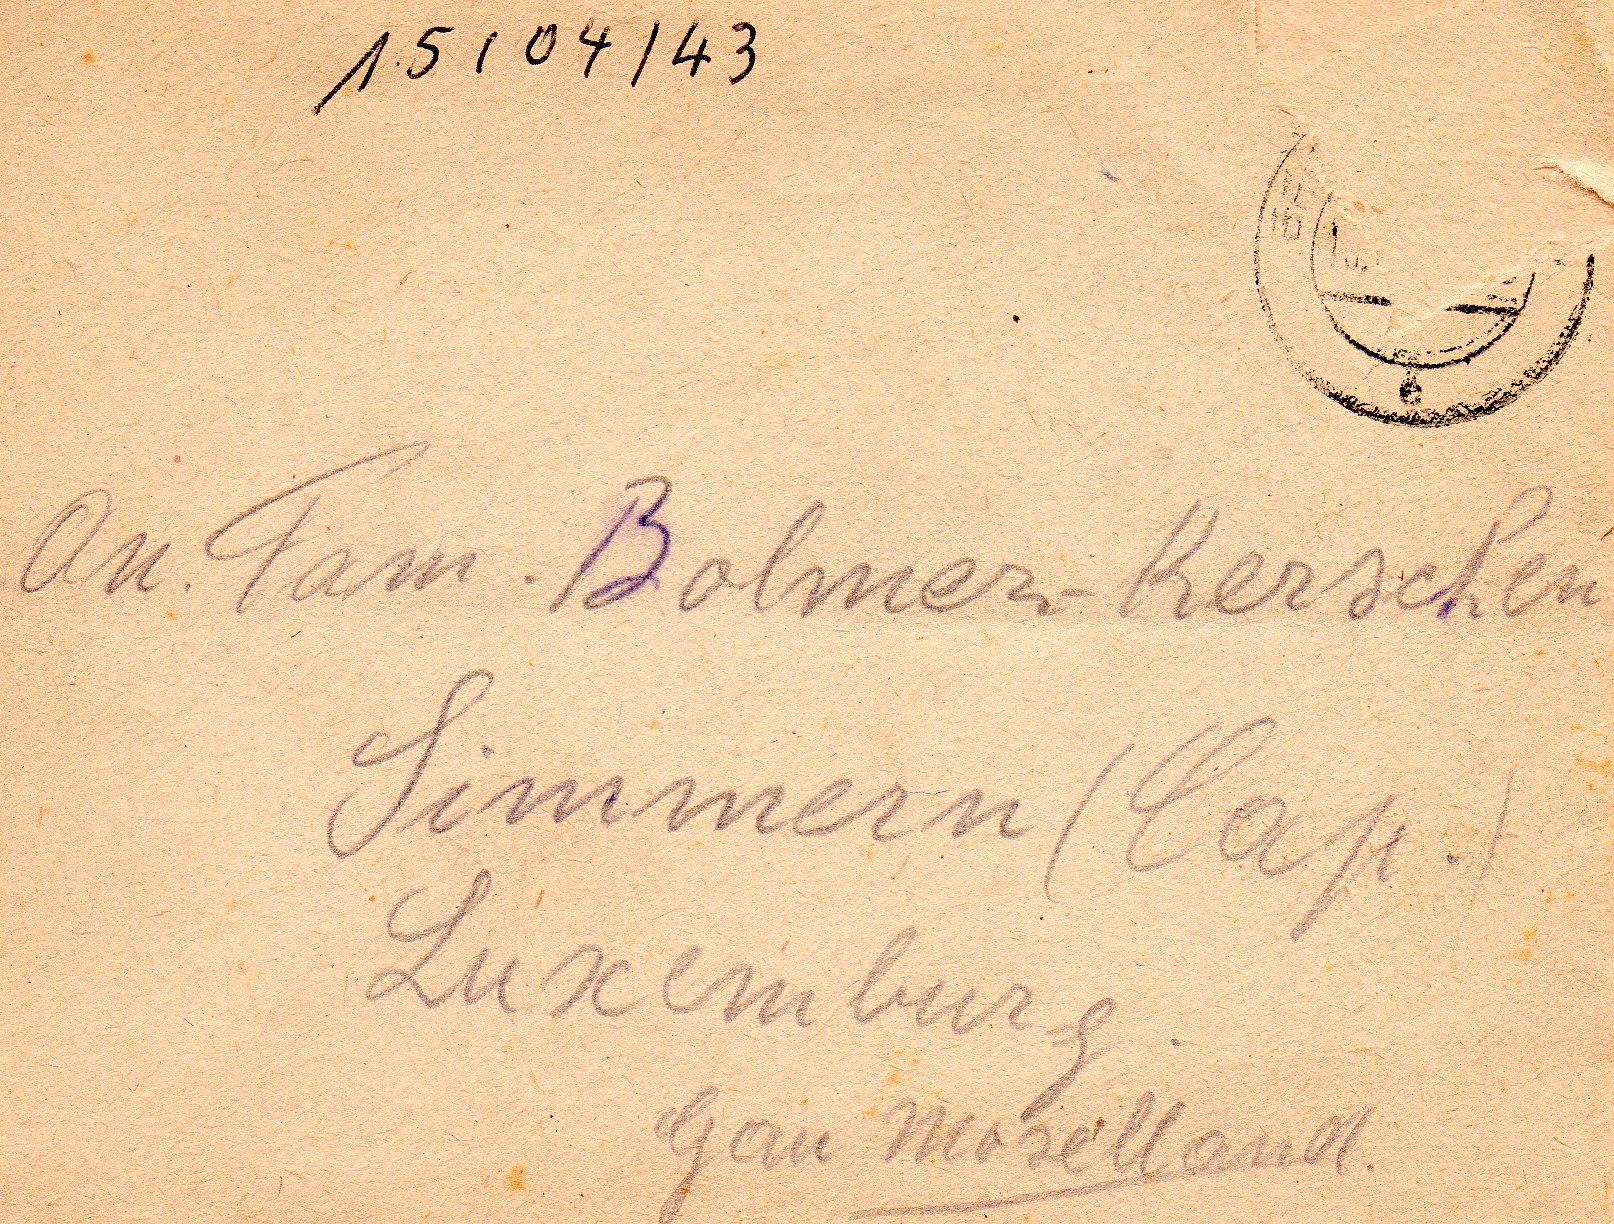 15/04/43
e
An. Fam. Bolmer-Kerschen
Simmern (Cap.)
Luxemburg.
Gau Moselland.